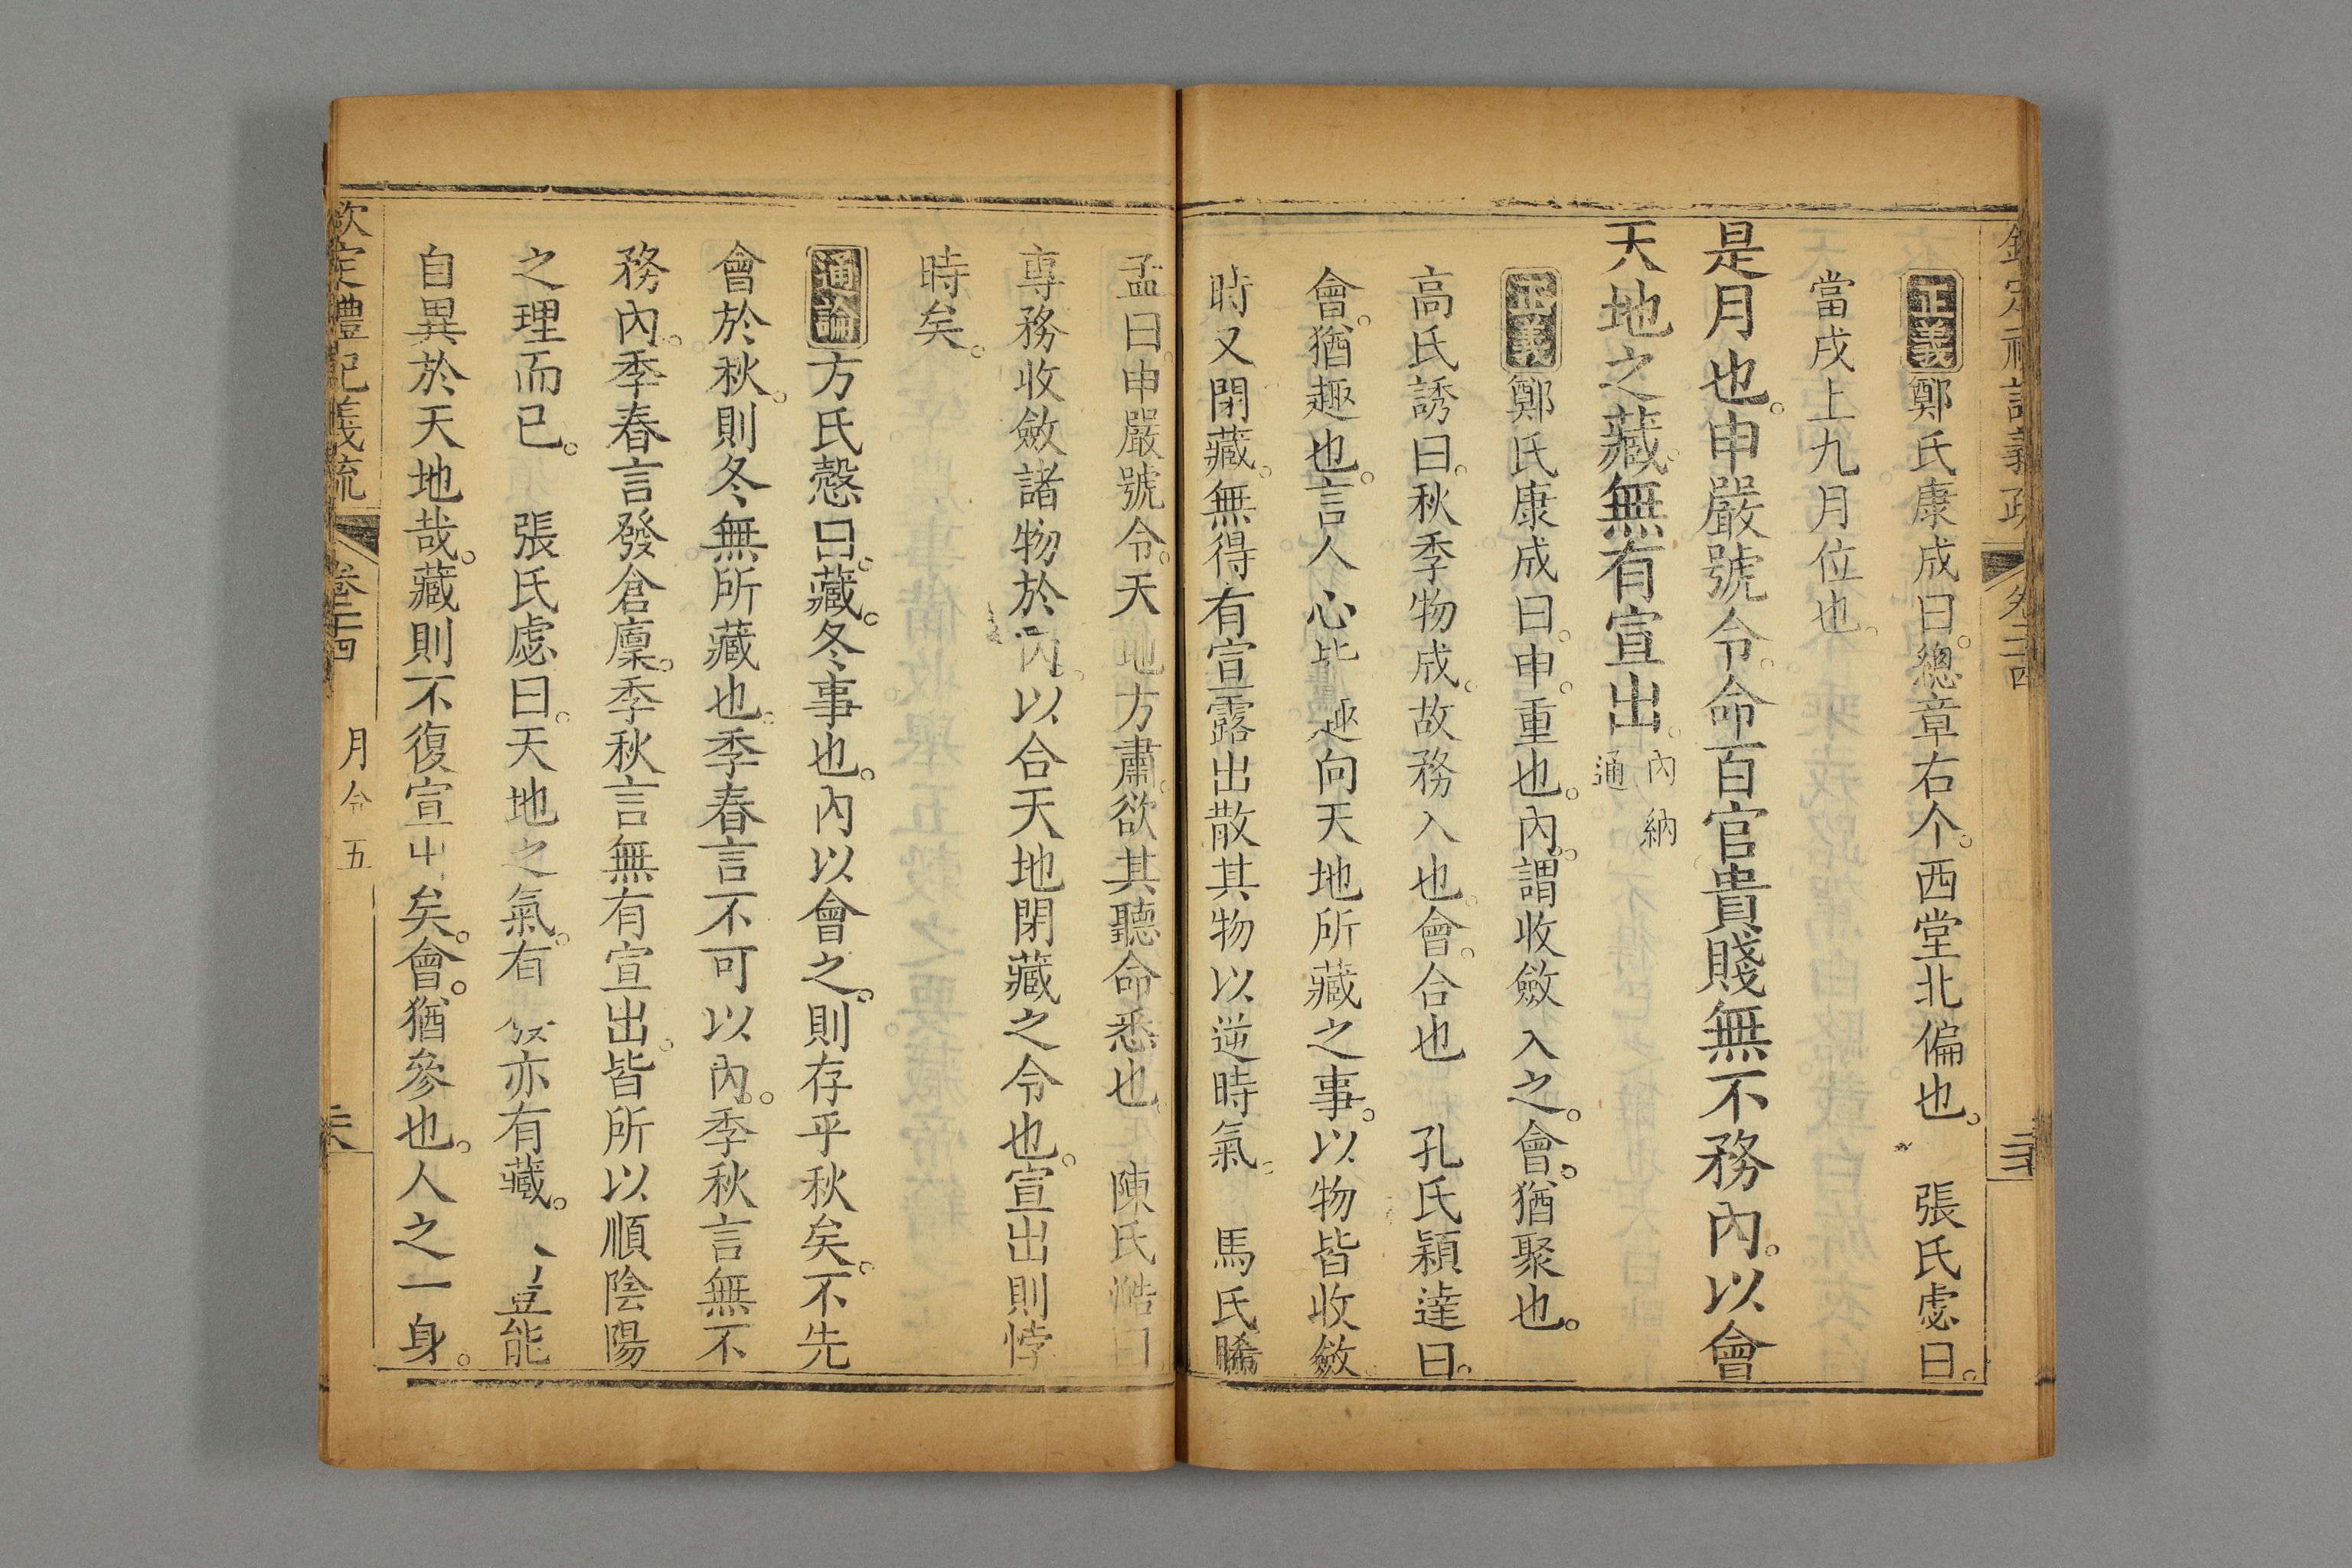 正義鄭氏康成曰。總章右个。西堂北偏也。張氏虙曰。
當戌上九月位也。
是月也。申嚴號令。命百官貴賤無不務內。以會
天地之藏。無有宣出。內納
通
正義鄭氏康成曰。申。重也。內。謂收斂入之。會。猶聚也。
高氏誘曰。秋季物成。故務入也。會。合也 孔氏穎達曰。
會。猶趣也。言人心皆趣向天地所藏之事。以物皆收斂。
時又閉藏。無得有宣露出散其物以逆時氣。 馬氏睎
孟曰。申嚴號令。天地方肅。欲其聽命悉也。 陳氏澔曰。
專務收斂諸物於內。以合天地閉藏之令也。宣出則悖
時矣。
通論方氏慤曰。藏。冬事也。內以會之。則存乎秋矣。不先
會於秋。則冬無所藏也。季春言不可以內。季秋言無不
務內。季春言發倉廩。季秋言無有宣出。皆所以順陰陽
之理而已。 張氏虙曰。天地之氣。有發亦有藏。豈能
自異於天地哉。藏則不復宣出矣。會。猶參也。人之一身。
欽定禮記義疏 卷二十四 月令五